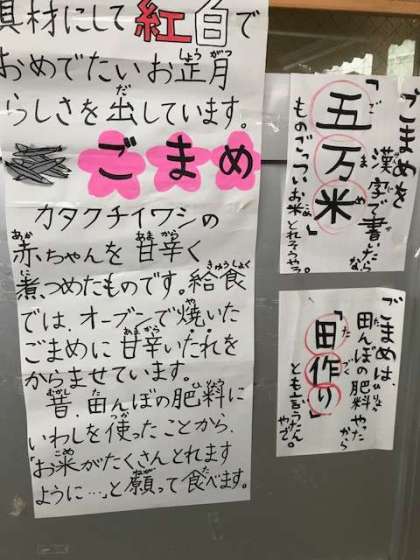 具材にして紅白で
おめでたいお正月
らしさを出しています。
ごまめ
カタクチイワシの
赤ちゃんを甘辛く
煮つめたものです。給食
では、オーブンで焼いた
ごまめに甘辛いたれを
からませています。
昔、田んぼの肥料に
いわしを使ったことから、
「お米がたくさんとれます
ように…」と願って食べます。
ごまめを
漢字で書いたらな、
「五万米」
ものごっついお米とれそうやろ。
ごまめは、
田んぼの肥料やったから
「田作り」
とも言うたんやで。